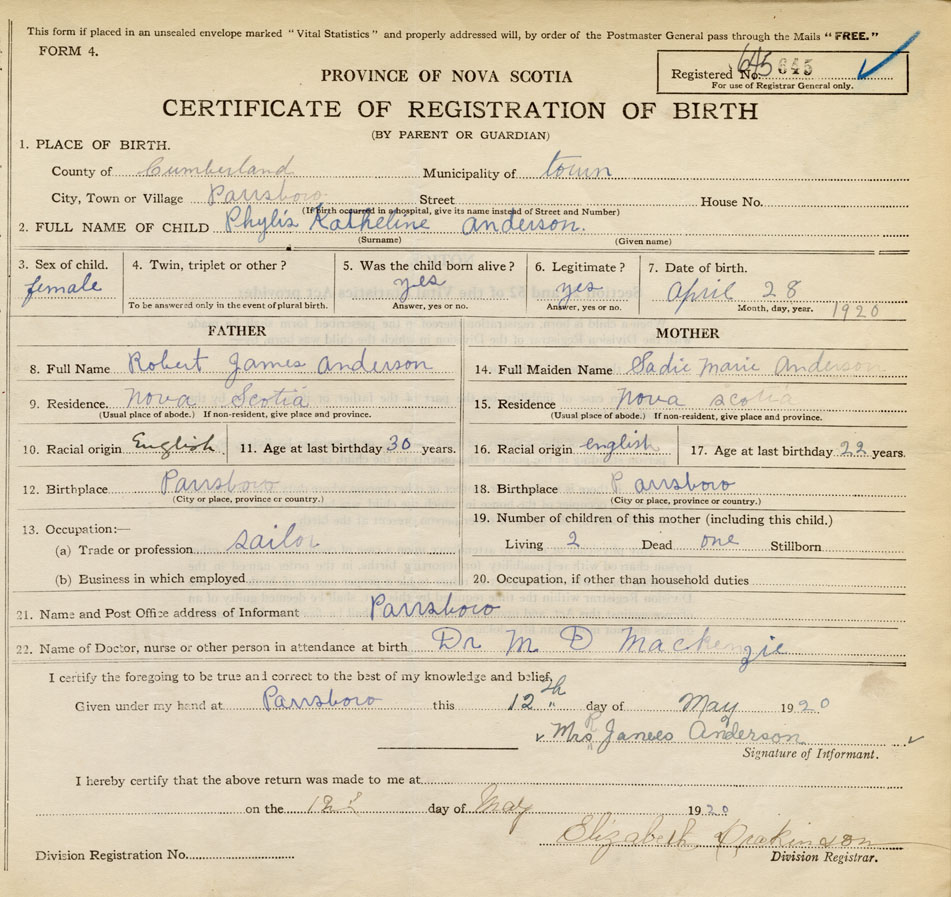 This form if placed in an unsealed envelope marked "Vital Statistics" and properly addressed will, by order of the Postmaster General pass through the Mails "FREE."
FORM 4.
Registered No. 645 645
For use of Registrar General only.
PROVINCE OF NOVA SCOTIA
CERTIFICATE OF REGISTRATION OF BIRTH
(BY PARENT OR GUARDIAN)
1. PLACE OF BIRTH.
County of Cumberland Municipality of town
City, Town or Village Parrsboro Street House No.
(If birth occurred in a hospital, give its name instead of Street and Number)
2. FULL NAME OF CHILD Phylis Katheline Anderson.
(Surname) (Given name)
3. Sex of child. 4. Twin, triplet or other? 5. Was the child born alive? 6. Legitimate? 7. Date of birth.
female yes yes April 28 1920
To be answered only in the event of plural birth. Answer, yes or no. Answer, yes or no. Month, day, year.
FATHER MOTHER
8. Full Name Robert James Anderson 14. Full Maiden Name Sadie Marie Anderson
9. Residence. Nova Scotia 15. Residence. Nova scotia
(Usual place of abode.) If non-resident, give place and province. (Usual place of abode.) If non-resident, give place and province.
10. Racial origin English 11. Age at last birthday 30 years. 16. Racial origin english 17. Age at last birthday 22 years.
12. Birthplace Parrsboro 18. Birthplace Parrsboro
(City or place, province or country.) (City or place, province or country.)
13. Occupation:— 19. Number of children of this mother (including this child.)
(a) Trade or profession sailor Living 2 Dead one Stillborn
(b) Business in which employed 20. Occupation, if other than household duties
21. Name and Post Office address of Informant Parrsboro
22. Name of Doctor, nurse or other person in attendance at birth Dr M D Mackenzie
I certify the foregoing to be true and correct to the best of my knowledge and belief,
Given under my hand at Parrsboro this 12th day of May 1920
Mrs R Anderson
Signature of Informant.
I hereby certify that the above return was made to me at
on the day of May 1920
Elizabeth
Division Registration No. Division Registrar.